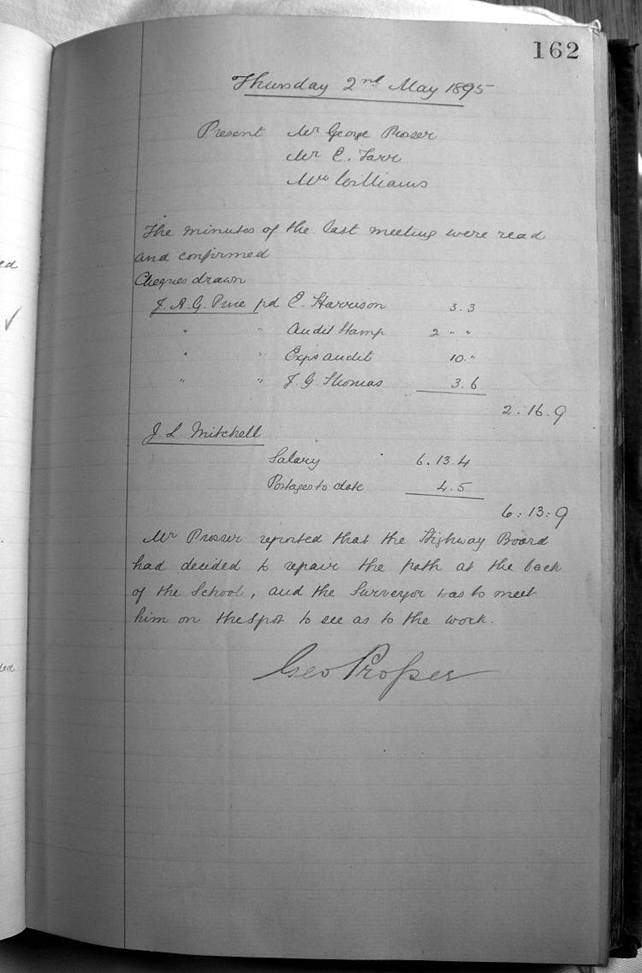 162
Thursday 2nd May 1895
Present Mr George Prosser
Mr E. Farr
Mr Williams
The minutes of the last meeting were read
and confirmed
Cheques drawn
J. A. G. Price pd E. Harrison 3.3
" " Audit Stamp 2 " "
" " Exps audit 10 "
" " J. G. Thomas 3.6
2.16.9
J. L. Mitchell
Salary 6.13.4
Postages to date 4.5
6:13:9
Mr Prosser reported that the Highway Board
had decided to repair the path at the back
of the School, and the Surveyor was to meet
him on the spot to see as to the work.
Geo Prosser